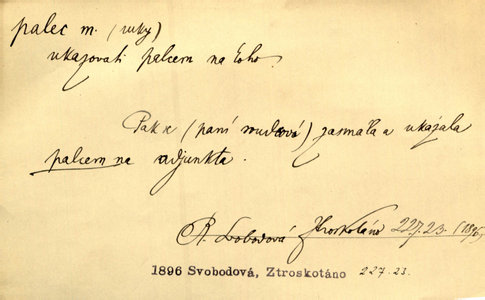 palec m. (ruky)
ukazovati palcem na koho.
Pak se (paní rudová) zasmála a ukázala
palcem na adjunkta.
R. Svobodová Ztroskotáno 227.23. (1896)
1896 Svobodová, Ztroskotáno 227.23.